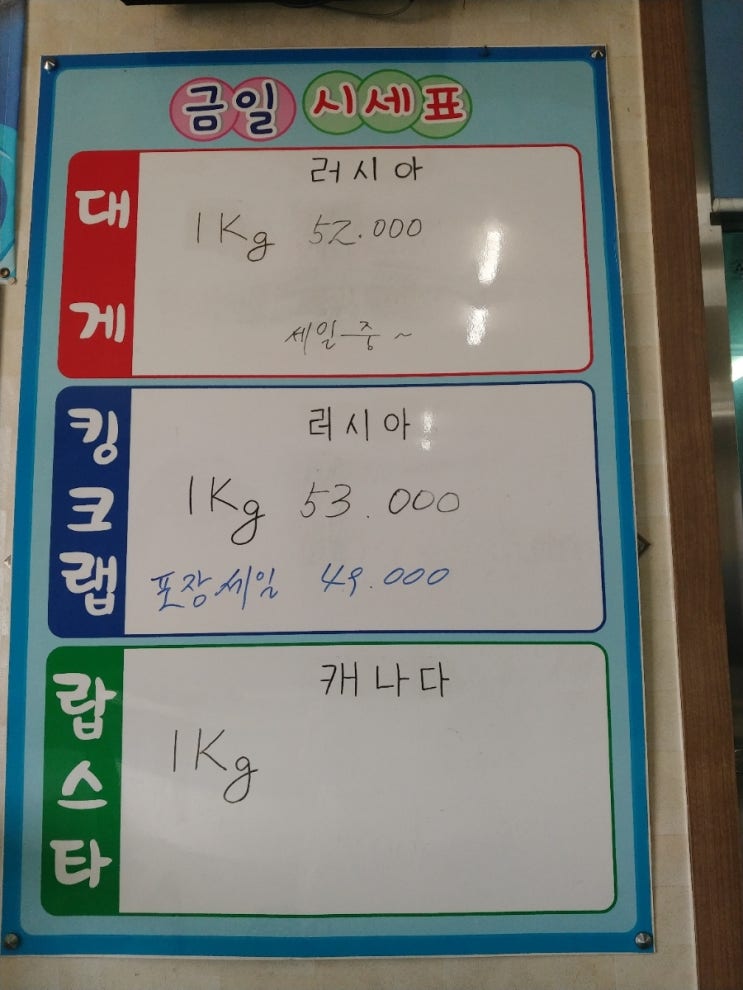 금일 시세표
대게
러시아
1Kg 52.000
세일중~
킹크랩
러시아
1Kg 53.000
포장세일 49.000
랍스타
캐나다
1Kg